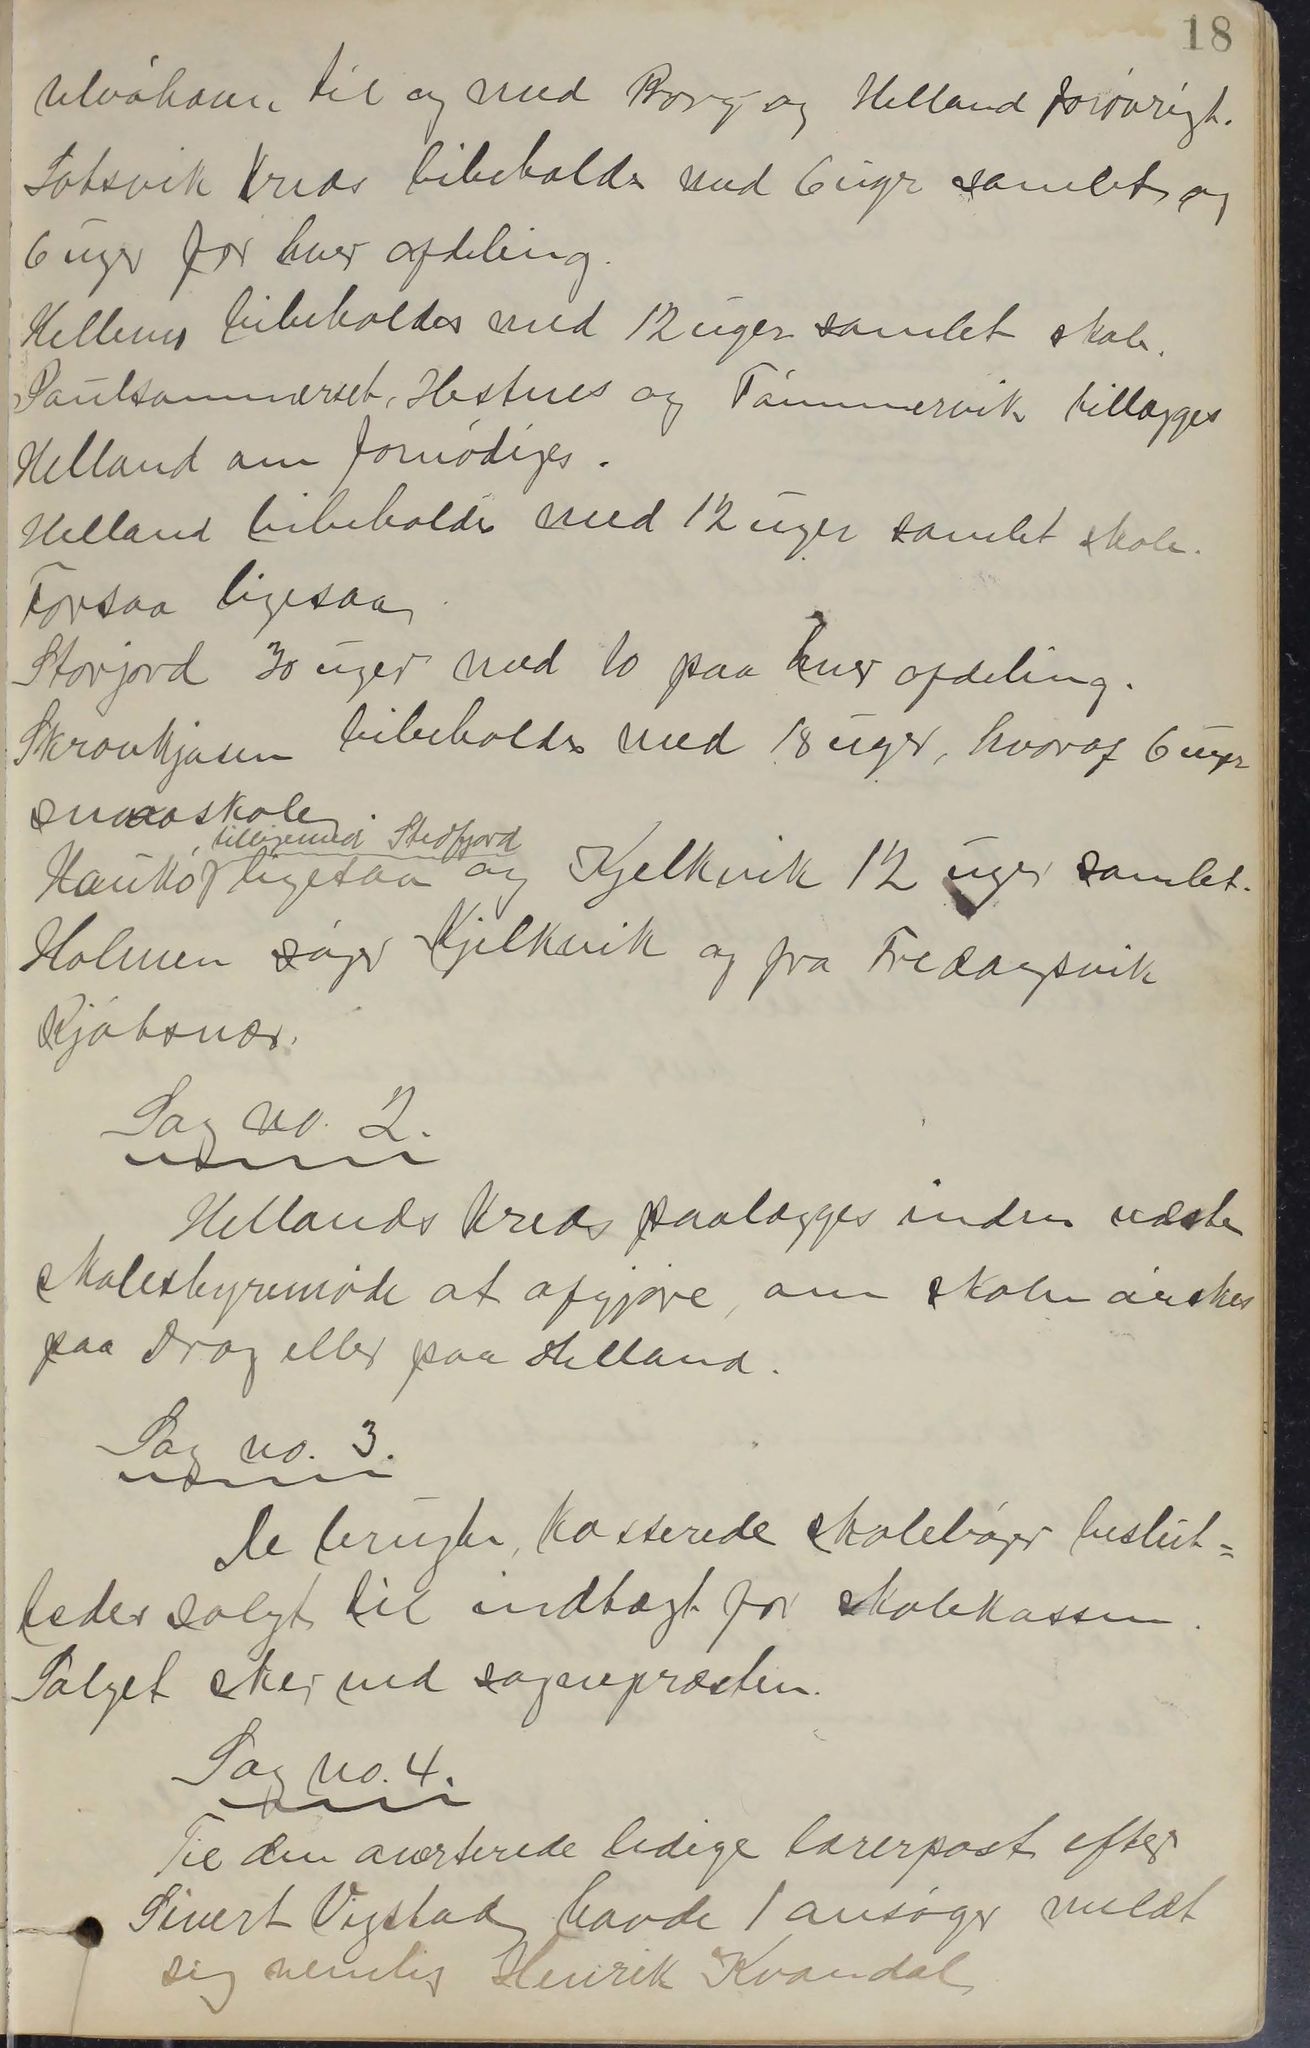 18
Ulvåhavn til og med Borg og Helland forøvrigt.
Sætsvik kreds bibeholdes med 6 uger samlet og
6 uger for hver afdeling.
Hellemo bibeholdes med 12 uger samlet skole.
Paulsommerset, Hestnes og Tømmervik tillægges
Helland om fornødiges.
Helland bibeholdes med 12 uger samlet skole.
Forsaa ligesaa
Storjord 30 uger med 10 paa hver afdeling.
Skrovkjosen bibeholdes med 18 uger, hvoraf 6 uger
smaaskole.
tilligemed Stedfjord
Haukø ligesaa og Kjelkvik 12 uger samlet.
Holmen søger Kjelkvik og fra Fredagsvik
Kjøbsnæs.
Sag no. 2.
Hellands kreds paalægges inden næste
skolestyremøde at afgjøre, om skolen ønskes
paa Drag eller paa Helland.
Sag no. 3.
De brugte, kasserede skolebøger beslut=
tedes solgt til indtægt for skolekassen.
Salget sker ved sognepræsten.
Sag no. 4.
Til den averterede ledige lærerpost efter
Sivert Vigstad havde 1 ansøger meldt
sig nemlig Henrik Kvandal